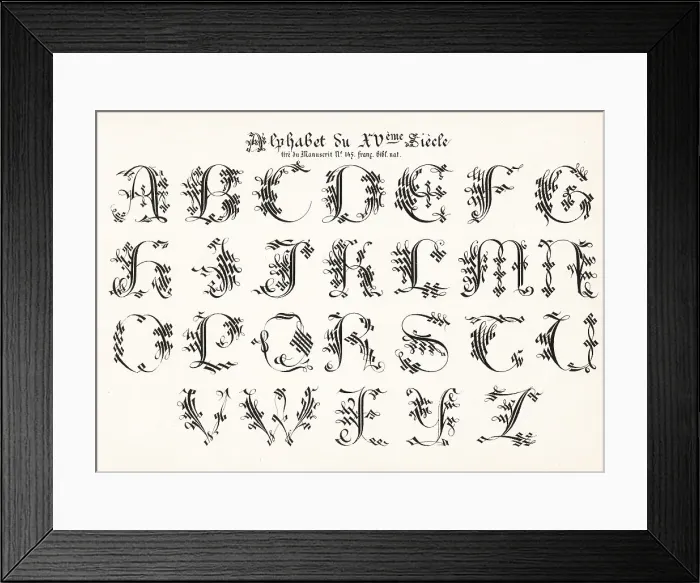 Alphabet du XVème Siècle
tiré du Manuscrit Nº 145. franç. Bibl. nat.
A B C D E F G
H I J K L M N
O P Q R S T U
V W X Y Z